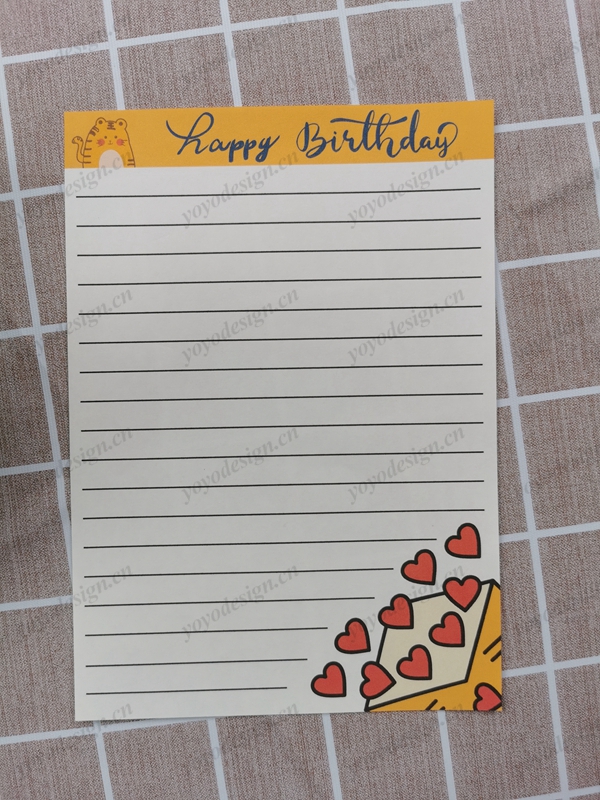 happy Birthday
yoyodesign.cn yoyodesign.cn
yoyodesign.cn yoyodesign.cn
yoyodesign.cn yoyodesign.cn
yoyodesign.cn yoyodesign.cn